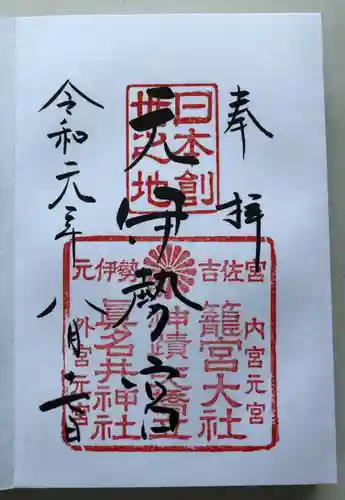 奉拝
日本創
世之地
元伊勢宮
吉佐宮
元伊勢
内宮元宮
籠宮大社
神蹟天橋立
眞名井神社
外宮元宮
令和元年八月二日